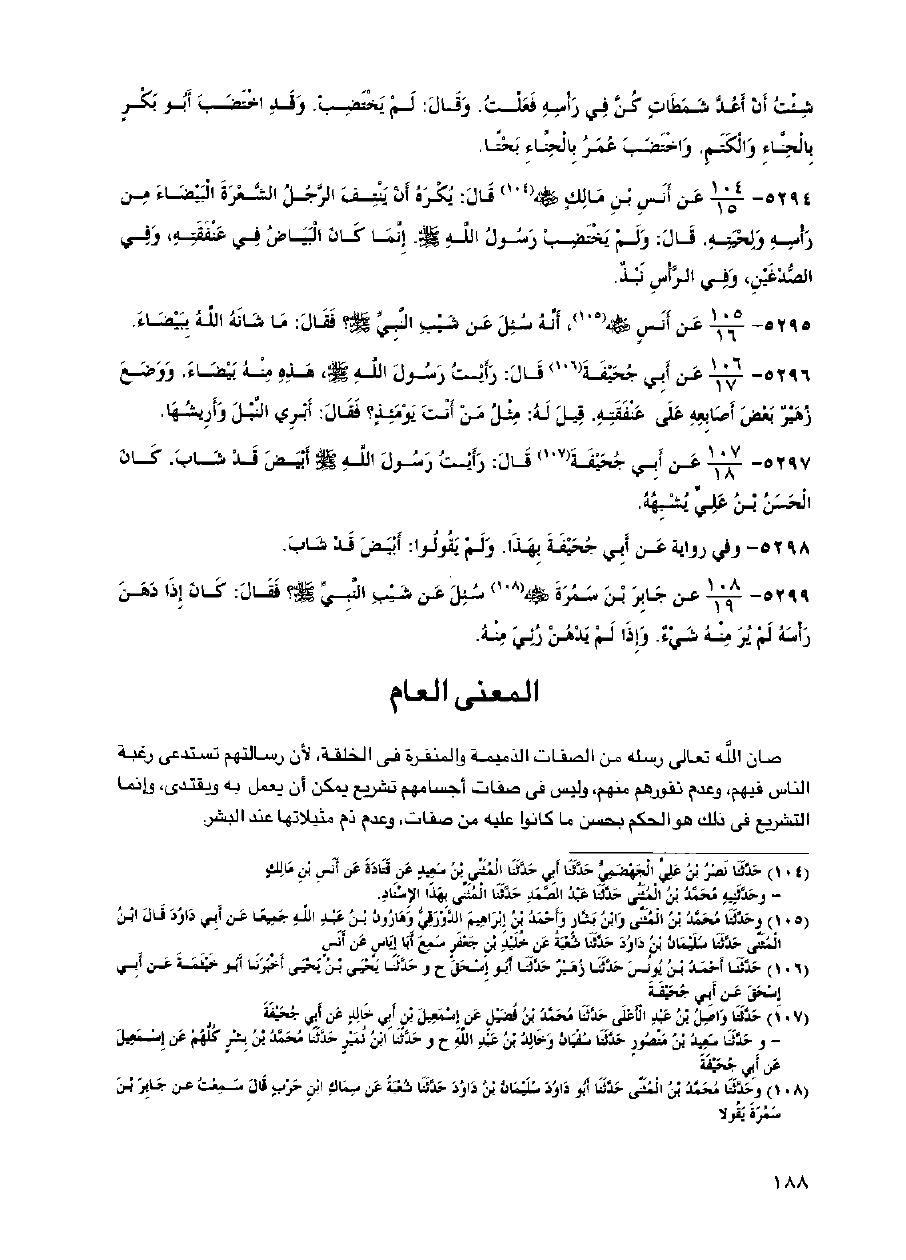 شِئْتُ أَنْ أَعُدَّ شَمَطَاتٍ كُنَّ فِي رَأْسِهِ فَعَلْتُ. وَقَالَ: لَمْ يَخْتَضِبْ. وَقَدِ اخْتَضَبَ أَبُو بَكْرٍ
بِالْحِنَّاءِ وَالْكَتَمِ. وَاخْتَضَبَ عُمَرُ بِالْحِنَّاءِ بَحْتًا.
٥٢٩٤- ١٠٤/١٥ عَن أَنَسِ بْنِ مَالِكٍ ﵁(١٠٤) قَالَ: يُكْرَهُ أَنْ يَنْتِفَ الرَّجُلُ الشَّعْرَةَ الْبَيْضَاءَ مِن
رَأْسِهِ وَلِحْيَتِهِ. قَالَ: وَلَمْ يَخْتَضِبْ رَسُولُ اللَّهِ ﷺ. إِنَّمَا كَانَ الْبَيَاضُ فِي عَنْفَقَتِهِ، وَفِي
الصُّدْغَيْنِ، وَفِي الرَّأْسِ نَبْذٌ.
٥٢٩٥- ١٠٥/١٦ عَن أَنَسٍ ﵁(١٠٥)، أَنَّهُ سُئِلَ عَن شَيْبِ النَّبِيِّ ﷺ؟ فَقَالَ: مَا شَانَهُ اللَّهُ بِبَيْضَاءَ.
٥٢٩٦- ١٠٦/١٧ عَن أَبِي جُحَيْفَةَ(١٠٦) قَالَ: رَأَيْتُ رَسُولَ اللَّهِ ﷺ، هَذِهِ مِنْهُ بَيْضَاءَ. وَوَضَعَ
زُهَيْرٌ بَعْضَ أَصَابِعِهِ عَلَى عَنْفَقَتِهِ. قِيلَ لَهُ: مِثْلُ مَنْ أَنْتَ يَوْمَئِذٍ؟ فَقَالَ: أَبْرِي النَّبْلَ وَأَرِيشُهَا.
٥٢٩٧- ١٠٧/١٨ عَن أَبِي جُحَيْفَةَ(١٠٧) قَالَ: رَأَيْتُ رَسُولَ اللَّهِ ﷺ أَبْيَضَ قَدْ شَابَ. كَانَ
الْحَسَنُ بْنُ عَلِيٍّ يُشْبِهُهُ.
٥٢٩٨- وفي رواية عَن أَبِي جُحَيْفَةَ بِهَذَا. وَلَمْ يَقُولُوا: أَبْيَضَ قَدْ شَابَ.
٥٢٩٩- ١٠٨/١٩ عَن جَابِرَ بْنَ سَمُرَةَ ﵁(١٠٨) سُئِلَ عَن شَيْبِ النَّبِيِّ ﷺ؟ فَقَالَ: كَانَ إِذَا دَهَنَ
رَأْسَهُ لَمْ يُرَ مِنْهُ شَيْءٌ. وَإِذَا لَمْ يَدْهُنْ رُئِيَ مِنْهُ.
المعنى العام
صان اللَّه تعالى رسله من الصفات الذميمة والمنفرة فى الخلقة، لأن رسالتهم تستدعى رغبة
الناس فيهم، وعدم نفورهم منهم، وليس فى صفات أجسامهم تشريع يمكن أن يعمل به ويقتدى، وإنما
التشريع فى ذلك هو الحكم بحسن ما كانوا عليه من صفات، وعدم ذم مثيلاتها عند البشر.
(١٠٤) حَدَّثَنَا نَصْرُ بْنُ عَلِيٍّ الْجَهْضَمِيُّ حَدَّثَنَا أَبِي حَدَّثَنَا الْمُثَنَّى بْنُ سَعِيدٍ عَن قَتَادَةَ عَن أَنَسِ بْنِ مَالِكٍ
- وحَدَّثَنِيهِ مُحَمَّدُ بْنُ الْمُثَنَّى حَدَّثَنَا عَبْدُ الصَّمَدِ حَدَّثَنَا الْمُثَنَّى بِهَذَا الإِسْنَادِ.
(١٠٥) وحَدَّثَنَا مُحَمَّدُ بْنُ الْمُثَنَّى وَابْنُ بَشَّارٍ وَأَحْمَدُ بْنُ إِبْرَاهِيمَ الدَّوْرَقِيُّ وَهَارُونُ بْنُ عَبْدِ اللَّهِ جَمِيعًا عَن أَبِي دَاوُدَ قَالَ ابْنُ
الْمُثَنَّى حَدَّثَنَا سُلَيْمَانُ بْنُ دَاوُدَ حَدَّثَنَا شُعْبَةُ عَن خُلَيْدِ بْنِ جَعْفَرٍ سَمِعَ أَبَا إِيَاسٍ عَن أَنَسٍ
(١٠٦) حَدَّثَنَا أَحْمَدُ بْنُ يُونُسَ حَدَّثَنَا زُهَيْرٌ حَدَّثَنَا أَبُو إِسْحَقَ ح و حَدَّثَنَا يَحْيَى بْنُ يَحْيَى أَخْبَرَنَا أَبُو خَيْثَمَةَ عَن أَبِي
إِسْحَقَ عَن أَبِي جُحَيْفَةَ
(١٠٧) حَدَّثَنَا وَاصِلُ بْنُ عَبْدِ الأَعْلَى حَدَّثَنَا مُحَمَّدُ بْنُ فُضَيْلٍ عَن إِسْمَعِيلَ بْنِ أَبِي خَالِدٍ عَن أَبِي جُحَيْفَةَ
- و حَدَّثَنَا سَعِيدُ بْنُ مَنْصُورٍ حَدَّثَنَا سُفْيَانُ وَخَالِدُ بْنُ عَبْدِ اللَّهِ ح و حَدَّثَنَا ابْنُ نُمَيْرٍ حَدَّثَنَا مُحَمَّدُ بْنُ بِشْرٍ كُلُّهُمْ عَن إِسْمَعِيلَ
عَن أَبِي جُحَيْفَةَ
(١٠٨) وحَدَّثَنَا مُحَمَّدُ بْنُ الْمُثَنَّى حَدَّثَنَا أَبُو دَاوُدَ سُلَيْمَانُ بْنُ دَاوُدَ حَدَّثَنَا شُعْبَةُ عَن سِمَاكِ ابْنِ حَرْبٍ قَالَ سَمِعْتُ عن جَابِرَ بْنَ
سَمُرَةَ يَقُولا
١٨٨